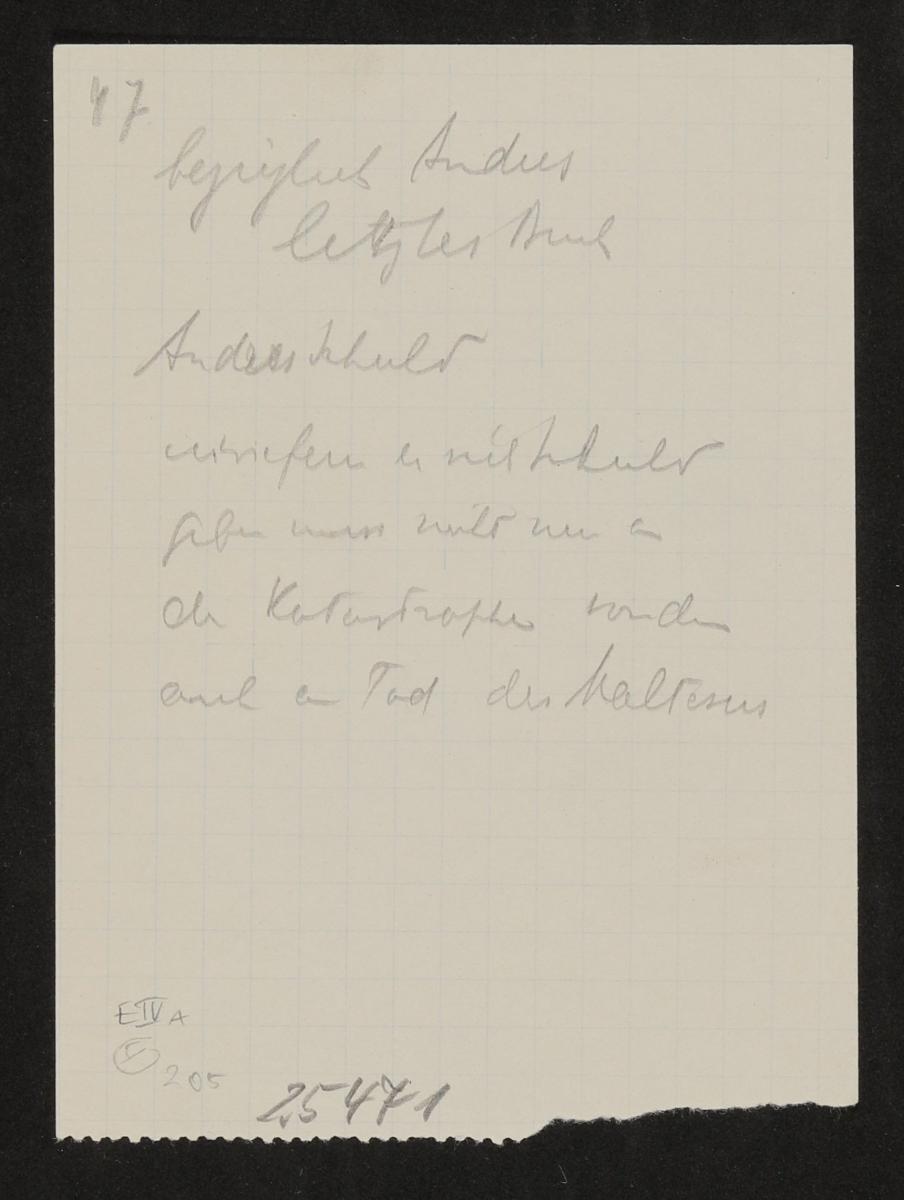 47
bezüglich Andreas
letztes Buch
Andreas Schuld
inwiefern er sich Schuld
geben muss nicht nur an
der Katastrophe sondern
auch am Tod des Maltesers
E IV A
205
25471